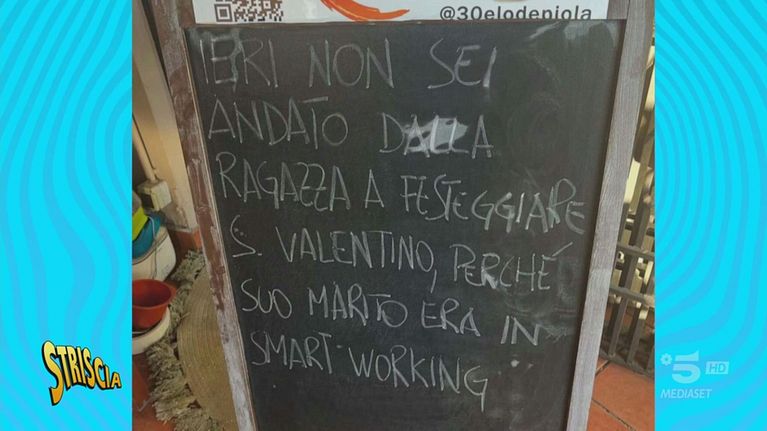 @30elodepiola
IERI NON SEI
ANDATO DALLA
RAGAZZA A FESTEGGIARE
S. VALENTINO, PERCHÉ
SUO MARITO ERA IN
SMART WORKING
STRISCIA
5 HD
MEDIASET